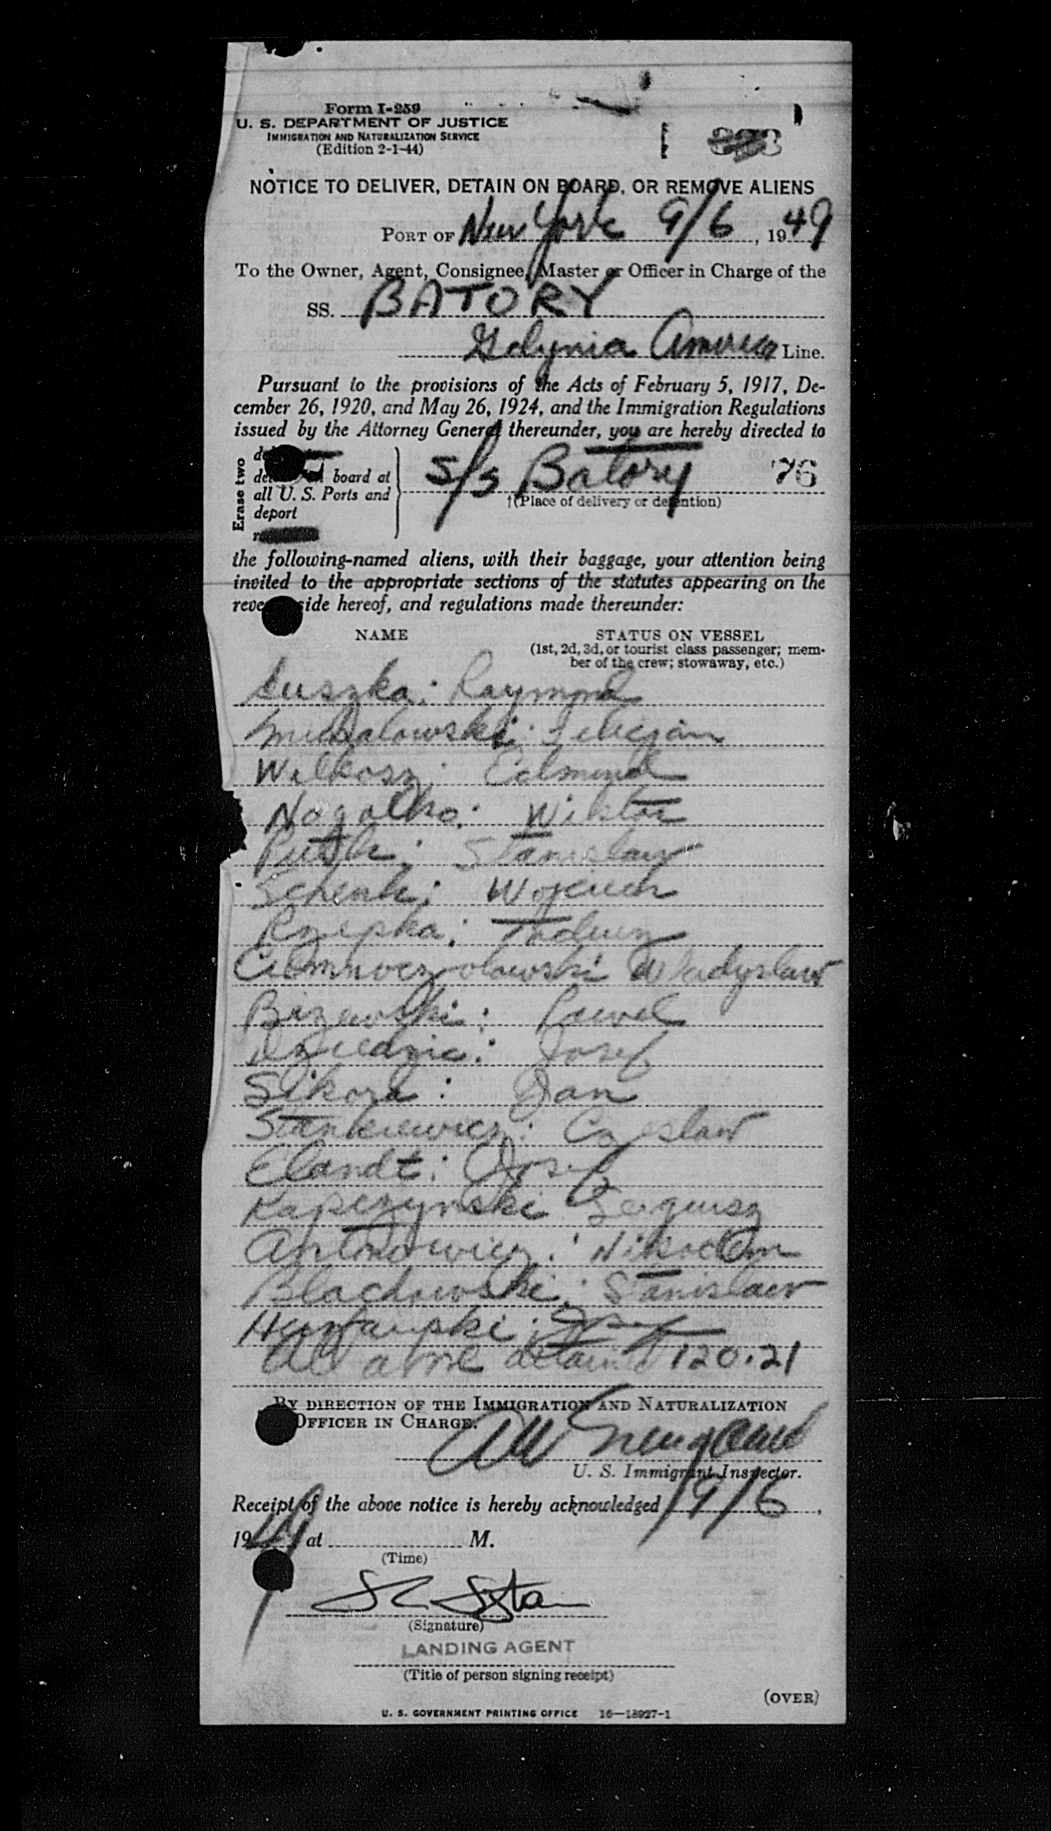 Form I-259
U. S. DEPARTMENT OF JUSTICE
IMMIGRATION AND NATURALIZATION SERVICE
(Edition 2-1-44)
NOTICE TO DELIVER, DETAIN ON BOARD, OR REMOVE ALIENS
PORT OF New York 9/6, 1949
To the Owner, Agent, Consignee, Master or Officer in Charge of the
SS. BATORY
Gdynia America Line.
Pursuant to the provisions of the Acts of February 5, 1917, De-
cember 26, 1920, and May 26, 1924, and the Immigration Regulations
issued by the Attorney General thereunder, you are hereby directed to
Erase two
board at
all U. S. Ports and
deport
s/s Batory 76
†(Place of delivery or detention)
the following-named aliens, with their baggage, your attention being
invited to the appropriate sections of the statutes appearing on the
side hereof, and regulations made thereunder:
NAME STATUS ON VESSEL
(1st, 2d, 3d, or tourist class passenger; mem-
ber of the crew; stowaway, etc.)
Suszka: Raymond
Michalowski: Felicjan
Wilkosz: Edmund
Nogalko: Wiktor
Putk: Stanislaw
Schenk: Wojciech
Rzepka: Tadeusz
Wladyslaw
Bizewski: Pawel
Dziedzic: Josef
Sikora: Jan
Stankiewicz: Czeslaw
Elandt: Josef
Kapczynski Sergiusz
Antonowicz: Nikodem
Blachowski: Stanislaw
Josef
All above detained 120.21
BY DIRECTION OF THE IMMIGRATION AND NATURALIZATION
OFFICER IN CHARGE.
U. S. Immigrant Inspector.
Receipt of the above notice is hereby acknowledged 9/6,
1949 at M.
(Time)
(Signature)
LANDING AGENT
(Title of person signing receipt)
(OVER)
U. S. GOVERNMENT PRINTING OFFICE 16—18927-1